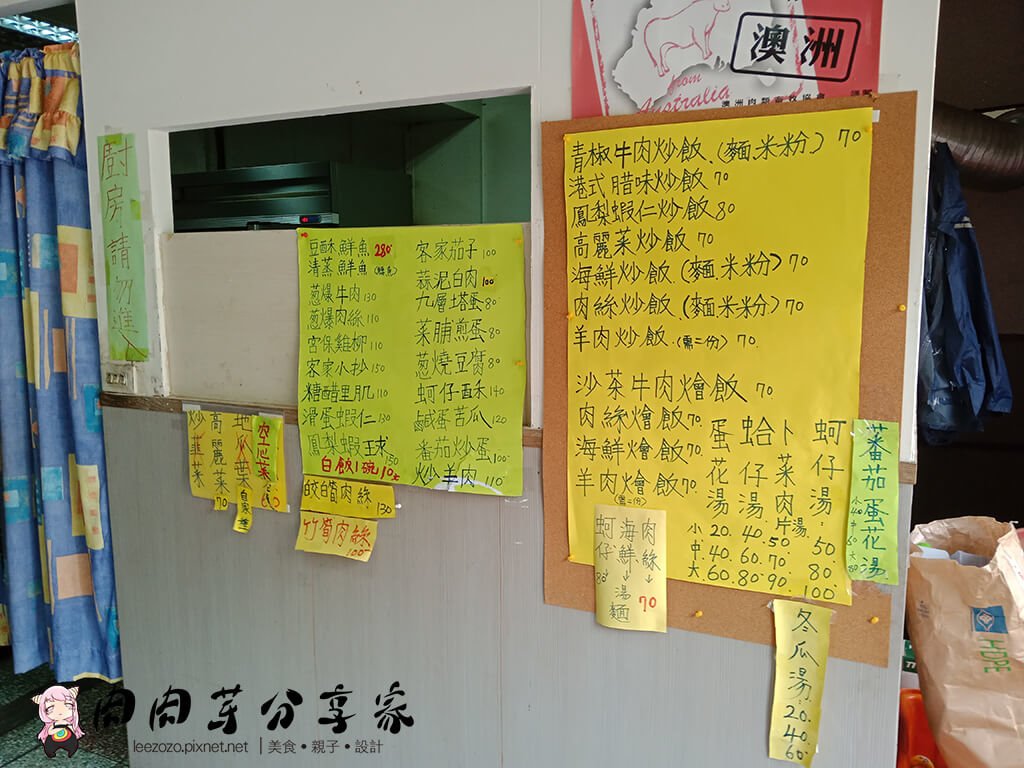 澳洲
from
Australia
廚房請勿進
豆酥鮮魚 280
清蒸鮮魚
蔥爆牛肉 130
蔥爆肉絲 110
宮保雞柳 110
客家小抄 150
糖醋里肌 110
滑蛋蝦仁 130
鳳梨蝦球 150
白飯1碗10元
客家茄子 100
蒜泥白肉 100
九層塔蛋 80
菜脯煎蛋 80
蔥燒豆腐 80
蚵仔酥 140
鹹蛋苦瓜 120
番茄炒蛋 100
炒羊肉 110
炒韭菜
高麗菜 70
地瓜葉
空心菜
筊白筍肉絲 130
竹筍肉絲 100
青椒牛肉炒飯.(麵.米粉) 70
港式腊味炒飯 70
鳳梨蝦仁炒飯 80
高麗菜炒飯 70
海鮮炒飯.(麵.米粉) 70
肉絲炒飯.(麵.米粉) 70
羊肉炒飯.(需二份) 70.
沙茶牛肉燴飯 70
肉絲燴飯 70.
海鮮燴飯 70.
羊肉燴飯 70.
(需二份)
蛋花湯
蛤仔湯
卜菜肉片湯
蚵仔湯
小.20.40.50 50
中.40.60.70 80
大.60.80.90. 100
番茄蛋花湯
小40
中60
大80
肉絲→
海鮮→湯麵 70
蚵仔 80
冬瓜湯.20.40.60
HOPE
肉肉芽分享家
leezozo.pixnet.net │美食•親子•設計